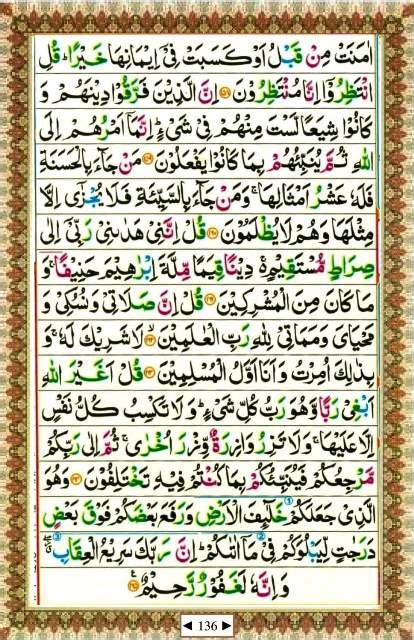 اٰمَنَتْ مِنْ قَبْلُ اَوْ كَسَبَتْ فِيْٓ اِيْمَانِهَا خَيْرًا ؕ قُلِ
انْتَظِرُوْٓا اِنَّا مُنْتَظِرُوْنَ ﴿۱۵۸﴾ اِنَّ الَّذِيْنَ فَرَّقُوْا دِيْنَهُمْ وَ
كَانُوْا شِيَعًا لَّسْتَ مِنْهُمْ فِيْ شَيْءٍ ؕ اِنَّمَآ اَمْرُهُمْ اِلَى
اللّٰهِ ثُمَّ يُنَبِّئُهُمْ بِمَا كَانُوْا يَفْعَلُوْنَ ﴿۱۵۹﴾ مَنْ جَآءَ بِالْحَسَنَةِ
فَلَهٗ عَشْرُ اَمْثَالِهَا ۚ وَمَنْ جَآءَ بِالسَّيِّئَةِ فَلَا يُجْزٰٓى اِلَّا
مِثْلَهَا وَهُمْ لَا يُظْلَمُوْنَ ﴿۱۶۰﴾ قُلْ اِنَّنِيْ هَدٰىنِيْ رَبِّيْٓ اِلٰى
صِرَاطٍ مُّسْتَقِيْمٍ ۚ دِيْنًا قِيَمًا مِّلَّةَ اِبْرٰهِيْمَ حَنِيْفًا ۚ وَ
مَا كَانَ مِنَ الْمُشْرِكِيْنَ ﴿۱۶۱﴾ قُلْ اِنَّ صَلَاتِيْ وَ نُسُكِيْ وَ
مَحْيَايَ وَ مَمَاتِيْ لِلّٰهِ رَبِّ الْعٰلَمِيْنَ ﴿۱۶۲﴾ لَا شَرِيْكَ لَهٗ ۚ وَ
بِذٰلِكَ اُمِرْتُ وَ اَنَا اَوَّلُ الْمُسْلِمِيْنَ ﴿۱۶۳﴾ قُلْ اَغَيْرَ اللّٰهِ
اَبْغِيْ رَبًّا وَّهُوَ رَبُّ كُلِّ شَيْءٍ ؕ وَلَا تَكْسِبُ كُلُّ نَفْسٍ
اِلَّا عَلَيْهَا ۚ وَلَا تَزِرُ وَازِرَةٌ وِّزْرَ اُخْرٰى ۚ ثُمَّ اِلٰى رَبِّكُمْ
مَّرْجِعُكُمْ فَيُنَبِّئُكُمْ بِمَا كُنْتُمْ فِيْهِ تَخْتَلِفُوْنَ ﴿۱۶۴﴾ وَهُوَ
الَّذِيْ جَعَلَكُمْ خَلٰٓئِفَ الْاَرْضِ وَرَفَعَ بَعْضَكُمْ فَوْقَ بَعْضٍ
دَرَجٰتٍ لِّيَبْلُوَكُمْ فِيْ مَآ اٰتٰىكُمْ ؕ اِنَّ رَبَّكَ سَرِيْعُ الْعِقَابِ ۖ
وَ اِنَّهٗ لَغَفُوْرٌ رَّحِيْمٌ ﴿۱۶۵﴾
◄ 136 ►